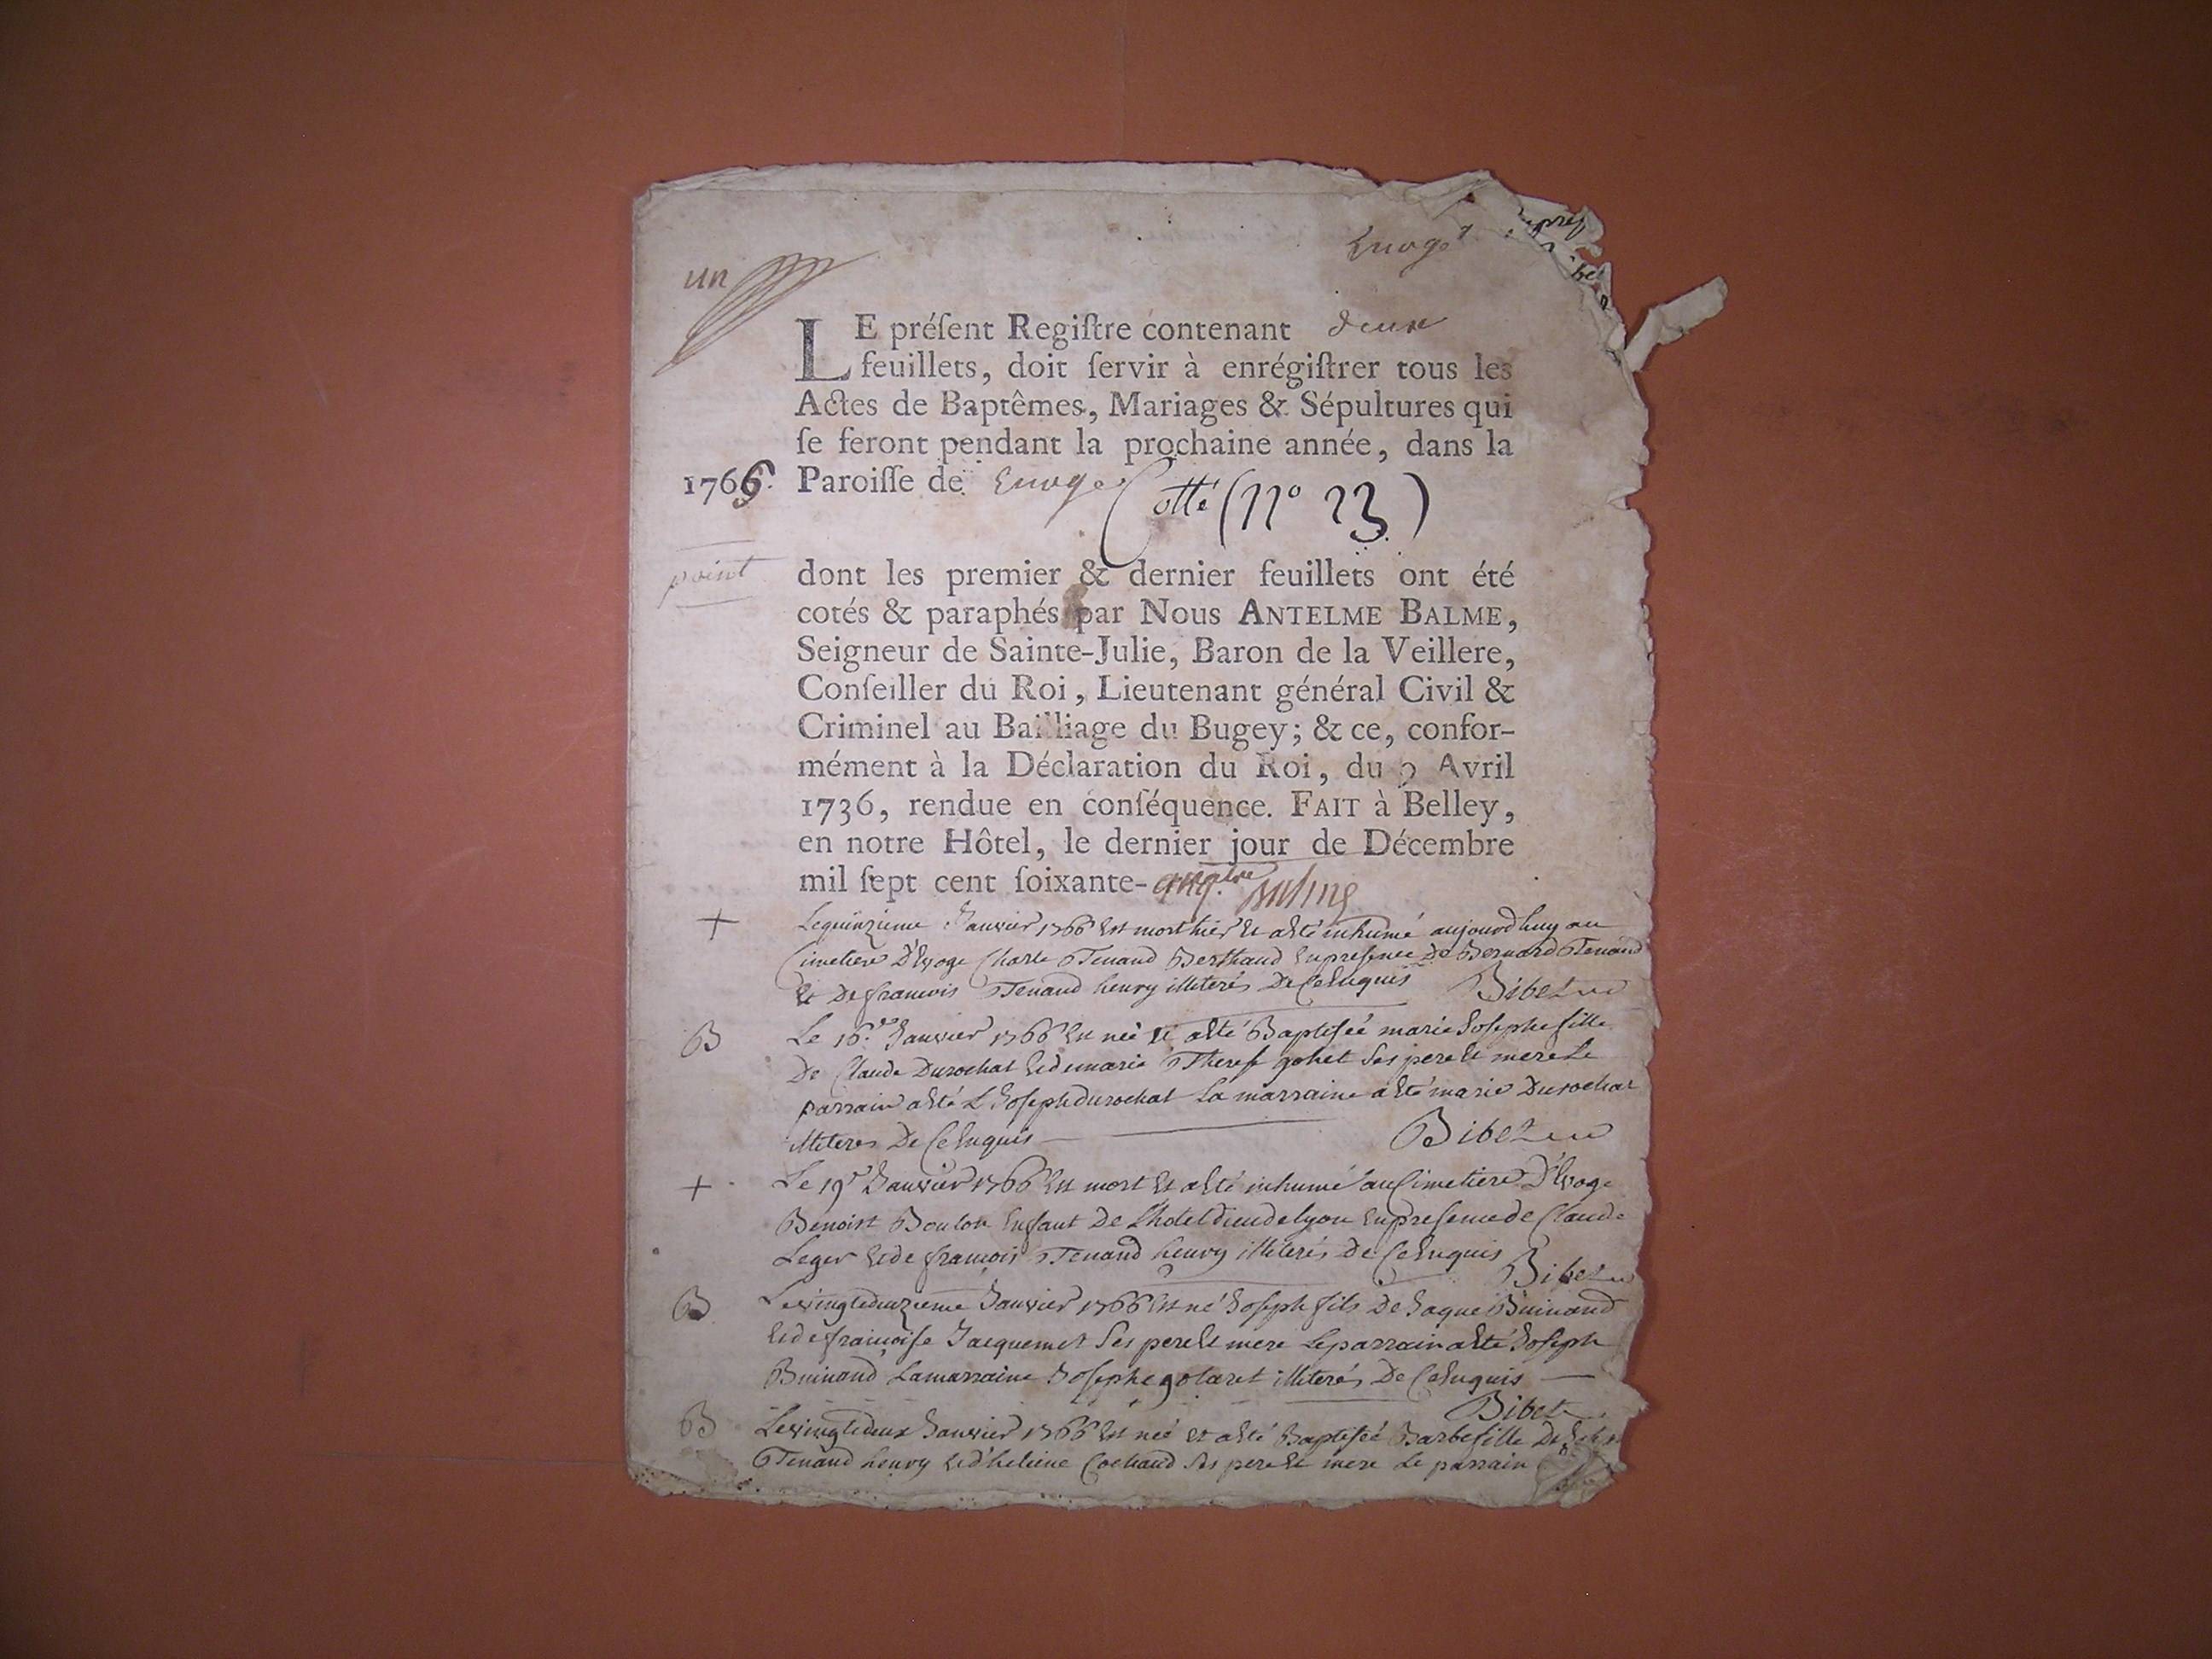 un
Evoge
LE préſent Regiſtre contenant deux
feuillets, doit ſervir à enrégiſtrer tous les
Actes de Baptêmes, Mariages & Sépultures qui
ſe feront pendant la prochaine année, dans la
1766. Paroiſſe de Evoge Cotté (N° 23)
point
dont les premier & dernier feuillets ont été
cotés & paraphés par Nous ANTELME BALME,
Seigneur de Sainte-Julie, Baron de la Veillere,
Conſeiller du Roi, Lieutenant général Civil &
Criminel au Bailliage du Bugey; & ce, confor-
mément à la Déclaration du Roi, du 9 Avril
1736, rendue en conſéquence. FAIT à Belley,
en notre Hôtel, le dernier jour de Décembre
mil ſept cent ſoixante-
+ Le quinzieme Janvier 1766 Est mort hier Et a Eté inhumé aujourdhuy au
Cimetiere D'Evoge Charle Tenand Berthaud En presence De Bernard Tenand
Et De francois Tenand henry illiterés De Ce Enquis Bibet
B Le 16e Janvier 1766 Est neé Et a Eté Baptiseé marie Josephe fille
De Claude Durochat Et de marie Therese gohet Ses pere Et mere Le
parrain a Eté Joseph durochat La marraine a Eté marie Durochat
illiteres De Ce Enquis Bibet
+ Le 19e Janvier 1766 Est mort Et a Eté inhumé au Cimetiere D'Evoge
Benoist Boulon Enfant De L'hotel dieu de lyon En presence de Claude
Leger Et de francois Tenand henry illiterés De Ce Enquis Bibet
B Le vingtedeuzieme Janvier 1766 Est né Joseph fils De Jaque Buinand
Et de francoise Jacquemet Ses pere Et mere Le parrain a Eté Joseph
Buinand La marraine Josephe golaret illiterés De Ce Enquis
Bibet
B Le vingtedeux Janvier 1766 Est neé et a Eté Baptiseé Barbe fille De
Tenand henry Et d'helaine Cochand Ses pere Et mere Le parrain